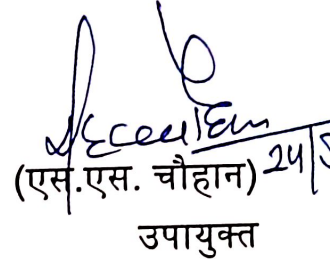 (एस.एस. चौहान) 24|
उपायुक्त